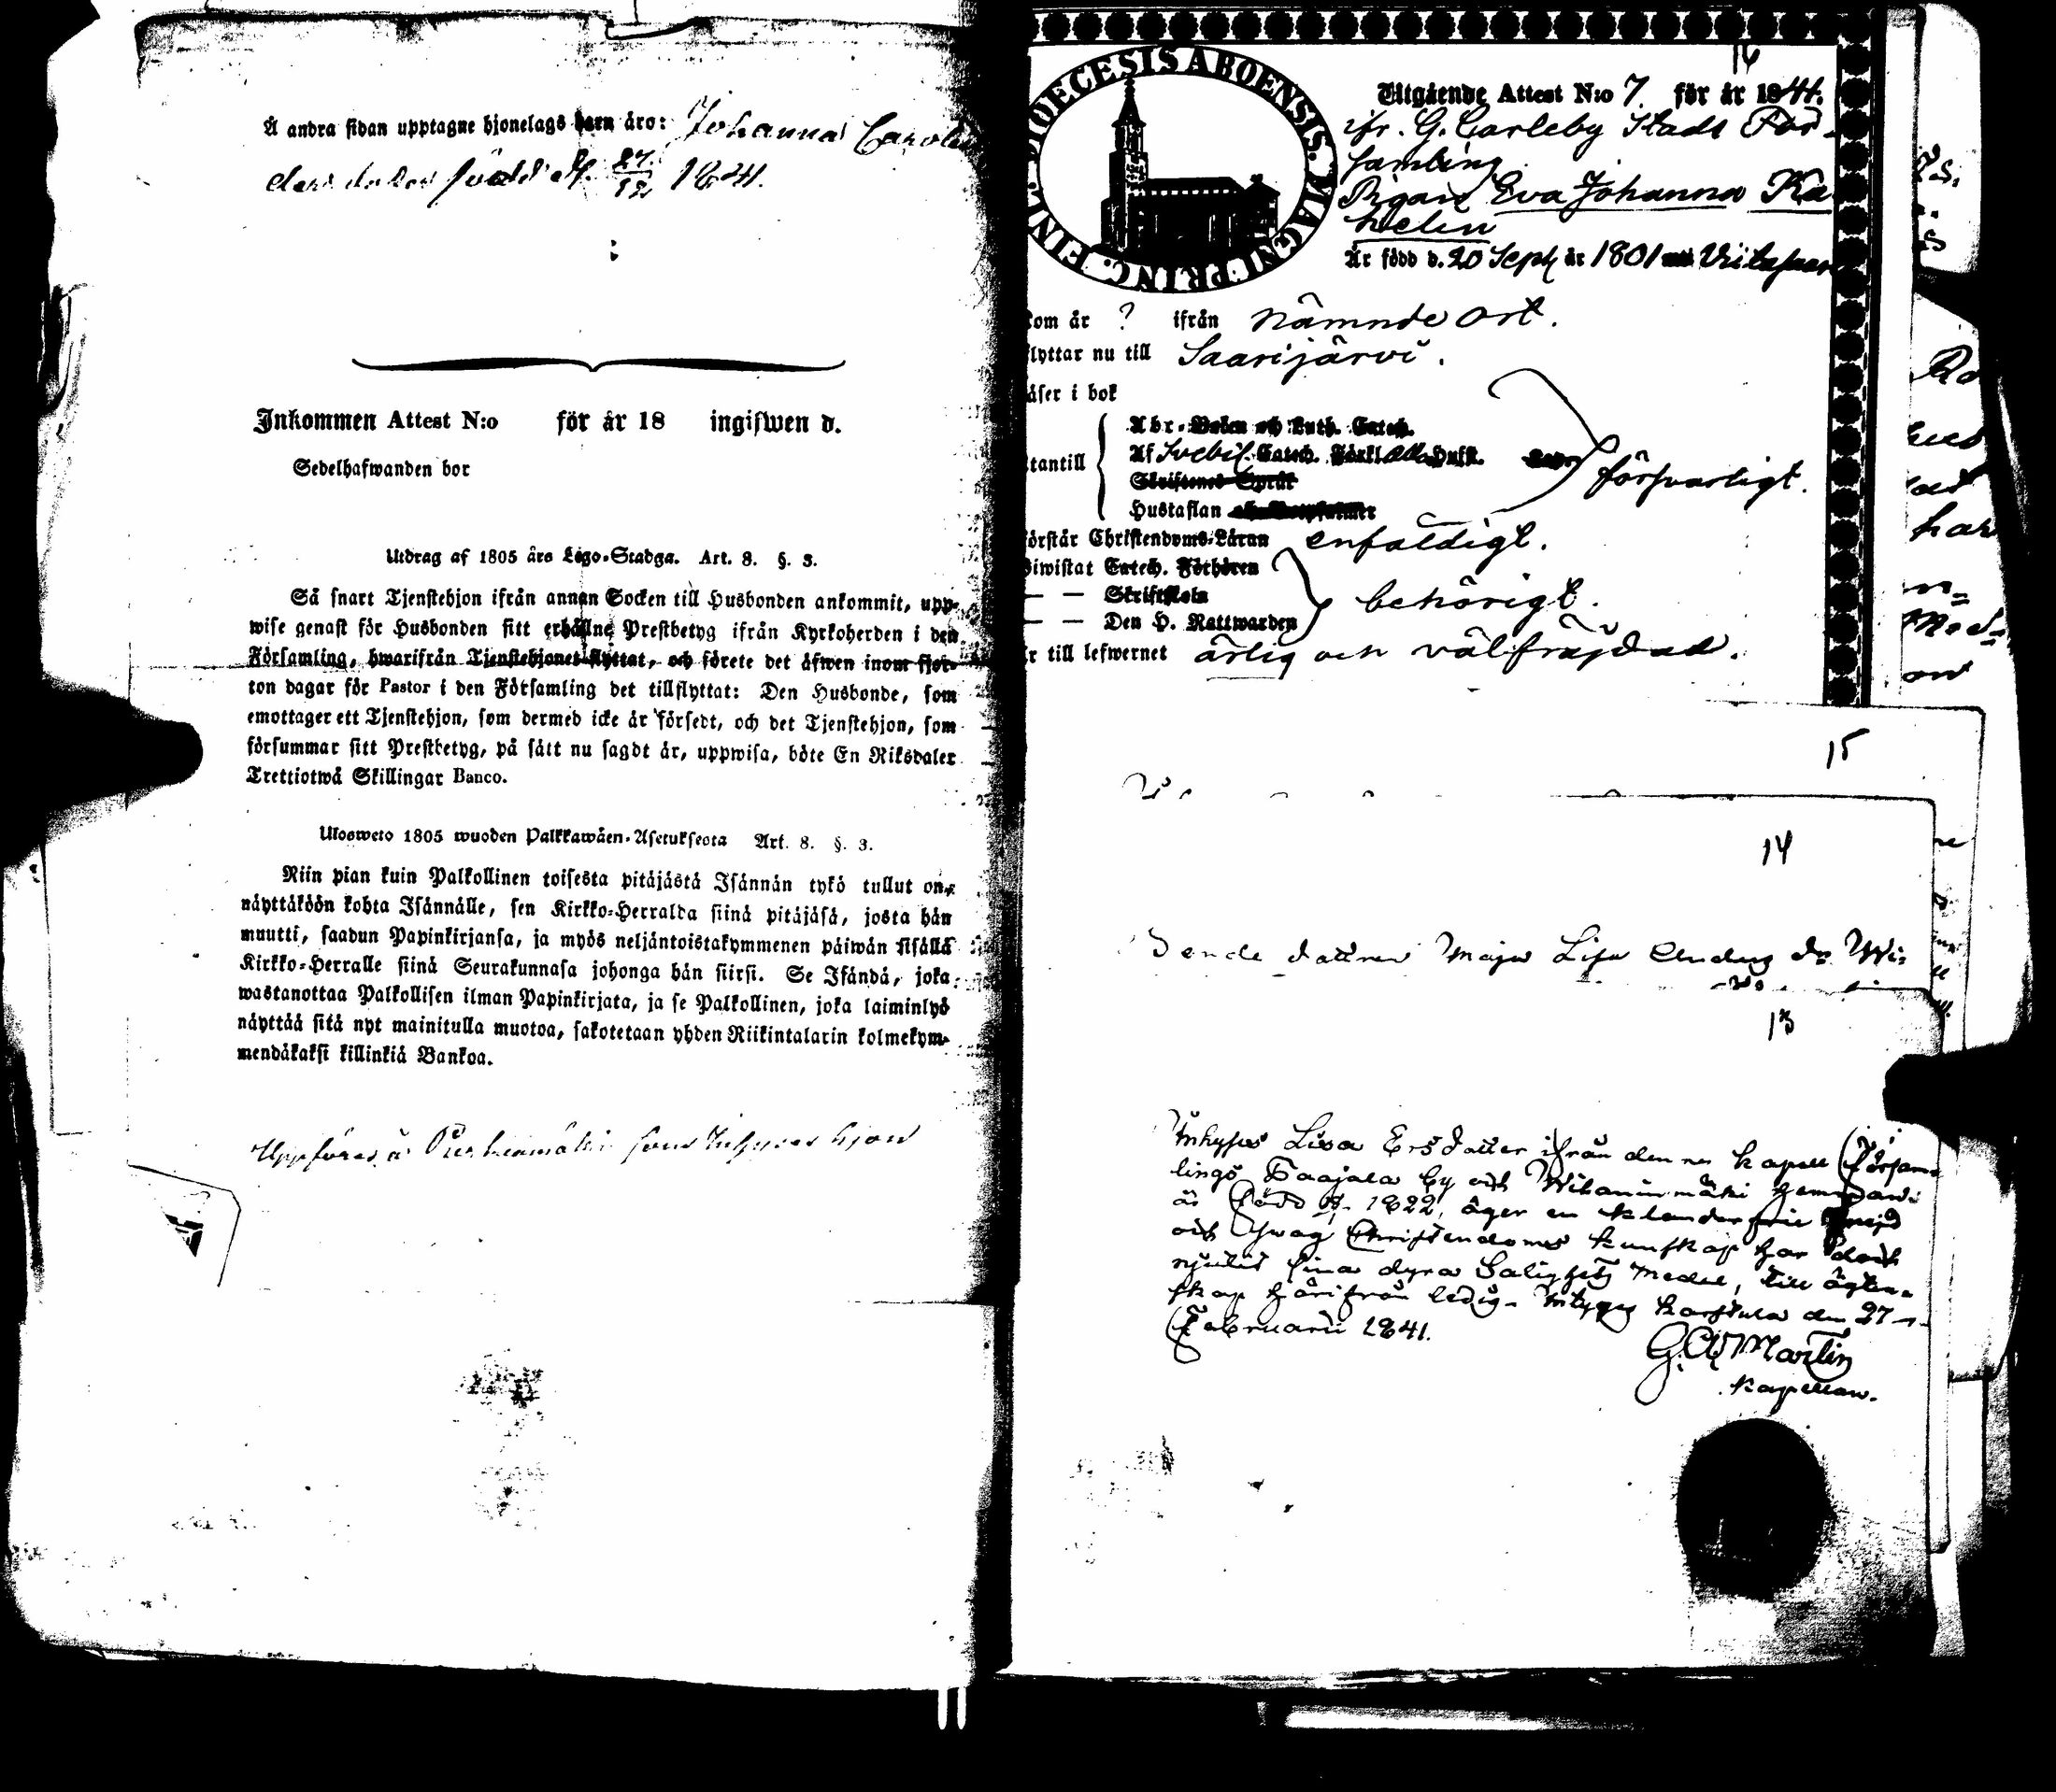 Å andra sidan upptagne hjonelags barn äro: Johanna
född d. 27/12 1841.
Inkommen Attest N:o för år 18 ingifwen d.
Sedelhafwanden bor
Utdrag af 1805 års Lego-Stadga. Art. 8. §. 3.
Så snart Tjenstehjon ifrån annan Socken till Husbonden ankommit, upp-
wise genast för Husbonden sitt erhållne Prestbetyg ifrån Kyrkoherden i den
Församling, hwarifrån Tjenstehjonet flyttat, och förete det äfwen inom fjor-
ton dagar för Pastor i den Församling det tillflyttat: Den Husbonde, som
emottager ett Tjenstehjon, som dermed icke är försedt, och det Tjenstehjon, som
försummar sitt Prestbetyg, på sätt nu sagdt är, uppwisa, böte En Riksdaler
Trettiotwå Skillingar Banco.
Ulosweto 1805 wuoden Palkkawäen-Asetuksesta Art. 8. §. 3.
Niin pian kuin Palkollinen toisesta pitäjästä Isännän tykö tullut on,
näyttäköön kohta Isännälle, sen Kirkko-Herralda siinä pitäjäsä, josta hän
muutti, saadun Papinkirjansa, ja myös neljäntoistakymmenen päiwän sisällä
Kirkko-Herralle siinä Seurakunnasa johonga hän siirsi. Se Isändä, joka
wastanottaa Palkollisen ilman Papinkirjata, ja se Palkollinen, joka laiminlyö
näyttää sitä nyt mainitulla muotoa, sakotetaan yhden Riikintalarin kolmekym-
mendäkaksi killinkiä Bankoa.
Uppföres å som Inhyses hjon
16
DIOECESIS ABOENSIS. MAGNI PRINC. FINL.
Utgående Attest N:o 7. för år 1841.
ifr. G. Carleby Stads För-
samling
Pigan Eva Johanna Ka-
helin
Är född d. 20 Sept. år 1801
kom år ? ifrån nämnde ort.
flyttar nu till Saarijärvi.
läser i bok
utantill
Abc-Boken och Luth. Catech.
Af Svebil. Catech. Förkl. alla Hufst.
Skriftenes Språk
Hustaflan
försvarligt.
förstår Christendoms-Läran enfaldigt.
Biwistat Catech. Förhören
— — Skriftskola
— — Den H. Nattwarden
behörigt.
är till lefwernet ärlig och välfräjdad.
15
14
dottren Maja Lisa
13
Inhyses Lisa Ersdotter ifrån denna kapell Församl-
lings Saajala by och hemman
är född d. 1822, äger en klanderfri frejd
och swag Christendoms kunskap har dock
njutit sina dyra Salighets Medel, till ägten-
skap härifrån ledig. Intygas Karstula den 27
Februarii 1841.
G. W. Martin
Kapellan.